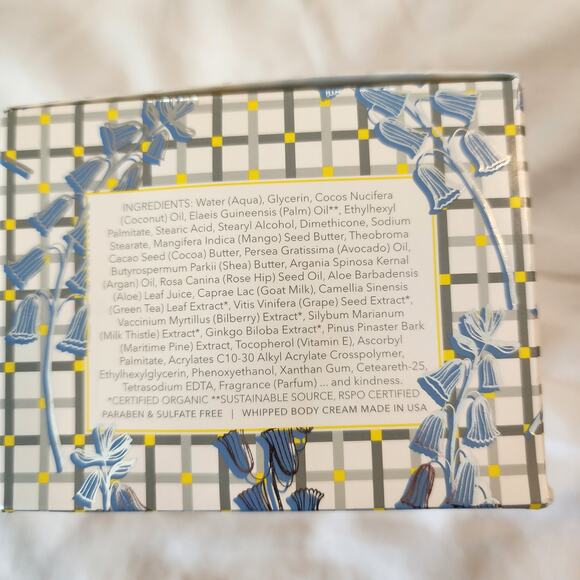 INGREDIENTS: Water (Aqua), Glycerin, Cocos Nucifera
(Coconut) Oil, Elaeis Guineensis (Palm) Oil**, Ethylhexyl
Palmitate, Stearic Acid, Stearyl Alcohol, Dimethicone, Sodium
Stearate, Mangifera Indica (Mango) Seed Butter, Theobroma
Cacao Seed (Cocoa) Butter, Persea Gratissima (Avocado) Oil,
Butyrospermum Parkii (Shea) Butter, Argania Spinosa Kernal
(Argan) Oil, Rosa Canina (Rose Hip) Seed Oil, Aloe Barbadensis
(Aloe) Leaf Juice, Caprae Lac (Goat Milk), Camellia Sinensis
(Green Tea) Leaf Extract*, Vitis Vinifera (Grape) Seed Extract*,
Vaccinium Myrtillus (Bilberry) Extract*, Silybum Marianum
(Milk Thistle) Extract*, Ginkgo Biloba Extract*, Pinus Pinaster Bark
(Maritime Pine) Extract, Tocopherol (Vitamin E), Ascorbyl
Palmitate, Acrylates C10-30 Alkyl Acrylate Crosspolymer,
Ethylhexylglycerin, Phenoxyethanol, Xanthan Gum, Ceteareth-25,
Tetrasodium EDTA, Fragrance (Parfum) ... and kindness.
*CERTIFIED ORGANIC **SUSTAINABLE SOURCE, RSPO CERTIFIED
PARABEN & SULFATE FREE | WHIPPED BODY CREAM MADE IN USA